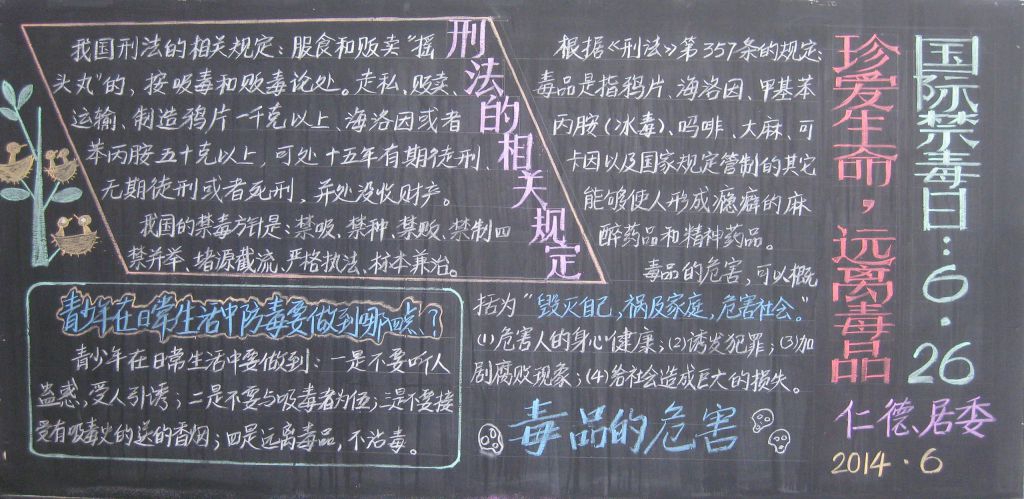 国际禁毒日：6.26
珍爱生命，远离毒品
仁德居委
2014.6
刑法的相关规定
我国刑法的相关规定：服食和贩卖“摇
头丸”的，按吸毒和贩毒论处。走私、贩卖、
运输、制造鸦片一千克以上、海洛因或者
苯丙胺五十克以上，可处十五年有期徒刑、
无期徒刑或者死刑，并处没收财产。
我国的禁毒方针是：禁吸、禁种、禁贩、禁制四
禁并举、堵源截流、严格执法、标本兼治。
根据《刑法》第357条的规定：
毒品是指鸦片、海洛因、甲基苯
丙胺（冰毒）、吗啡、大麻、可
卡因以及国家规定管制的其它
能够使人形成瘾癖的麻
醉药品和精神药品。
毒品的危害，可以概
括为“毁灭自己，祸及家庭，危害社会。”
(1)危害人的身心健康；(2)诱发犯罪；(3)加
剧腐败现象；(4)给社会造成巨大的损失。
毒品的危害
青少年在日常生活中防毒要做到哪四点？
青少年在日常生活中要做到：一是不要听人
蛊惑，受人引诱；二是不要与吸毒者为伍；三是不要接
受有吸毒史的送的香烟；四是远离毒品，不沾毒。